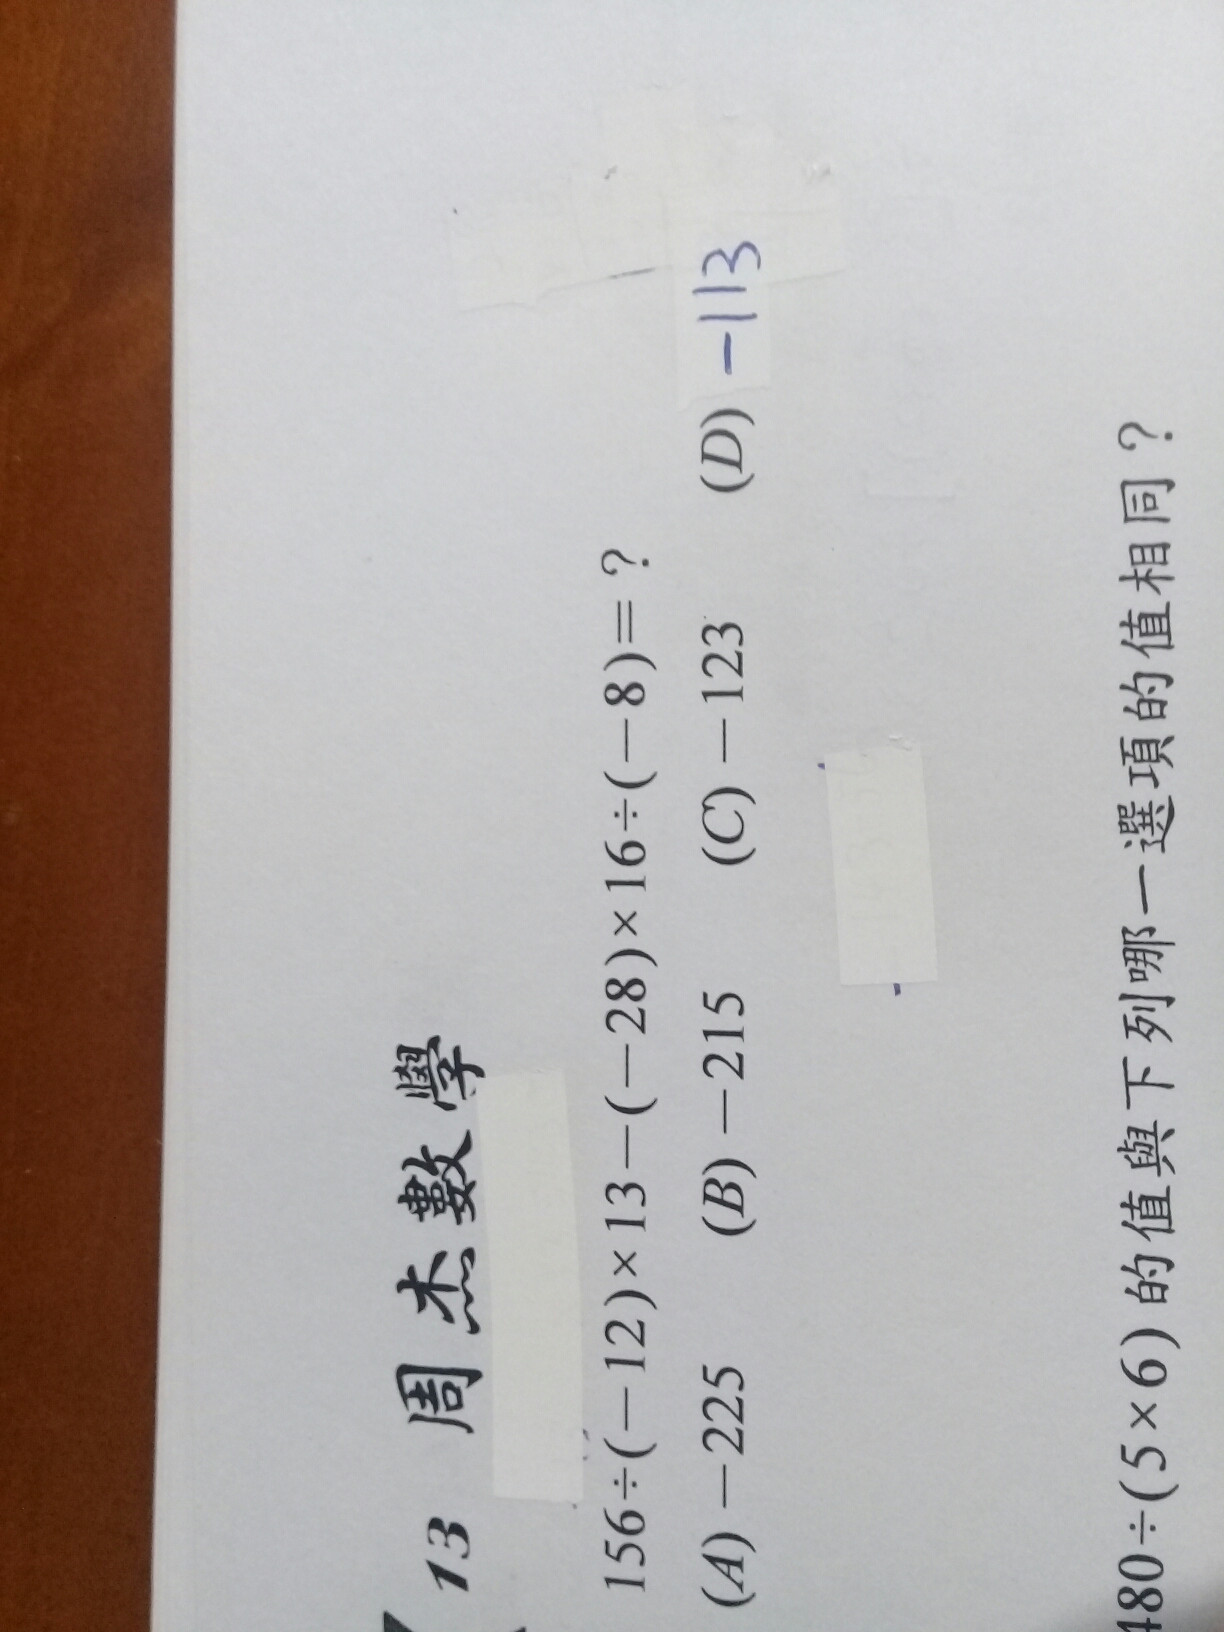 13 周杰數學
156÷(−12)×13−(−28)×16÷(−8)=?
(A)−225 (B)−215 (C)−123 (D)−113
480÷(5×6)的值與下列哪一選項的值相同？